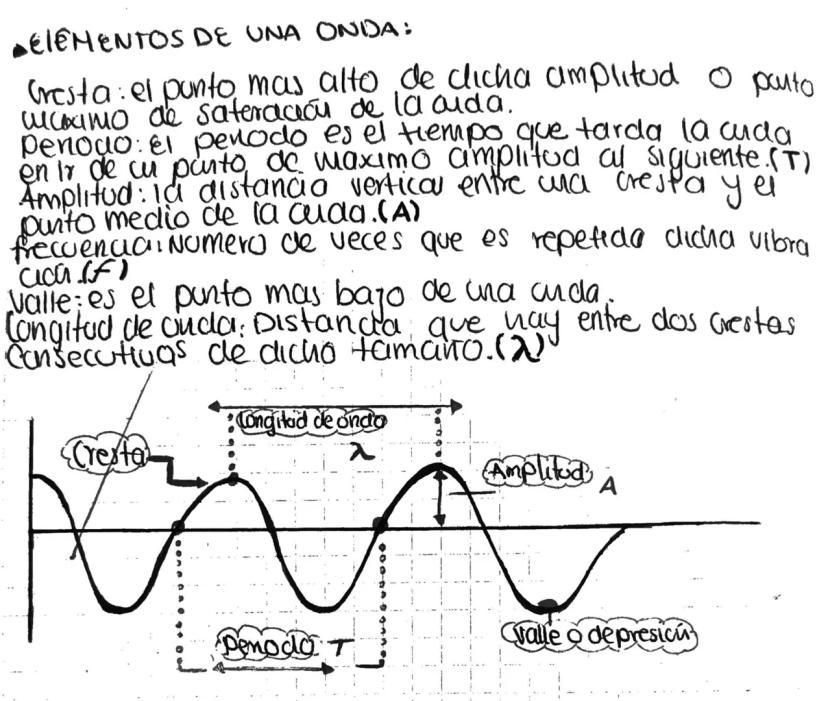 ELEMENTOS DE UNA ONDA:
Cresta: el punto mas alto de dicha amplitud o punto
maximo de sateración de la onda.
Periodo: el periodo es el tiempo que tarda la onda
en ir de un punto de maximo amplitud al siguiente.(T)
Amplitud: la distancia vertical entre una cresta y el
punto medio de la onda.(A)
frecuencia: Numero de veces que es repetida dicha vibra
ción.(F)
Valle: es el punto mas bajo de una onda.
Longitud de onda: Distancia que hay entre dos crestas
consecutivas de dicho tamaño.(λ)
Longitud de onda
λ
Cresta
Amplitud A
Periodo T
Valle o depresión